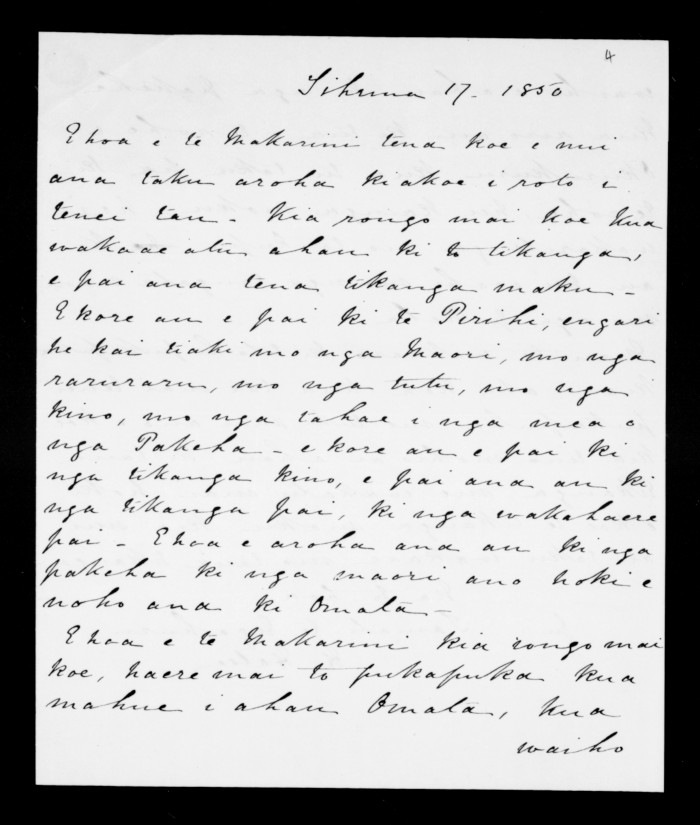 4
Tihema 17. 1850
Ehoa e te Makarini tena koe e nui
ana taku aroha kiakoe i roto i
tenei tau - Kia rongo mai koe kua
wakaae atu ahau ki to tikanga,
e pai ana tena tikanga maku -
Ekore au e pai ki te Pirihi, engari
he kai tiaki mo nga Maori, mo nga
raruraru, mo nga tutu, mo nga
kino, mo nga tahae i nga mea o
nga Pakeha - ekore au e pai ki
nga tikanga kino, e pai ana au ki
nga tikanga pai, ki nga wakahaere
pai - Ehoa e aroha ana au ki nga
pakeha ki nga maori ano hoki e
noho ana ki Omata -
Ehoa e te Makarini kia rongo mai
koe, haere mai to pukapuka kua
mahue i ahau Omata, kua
waiho